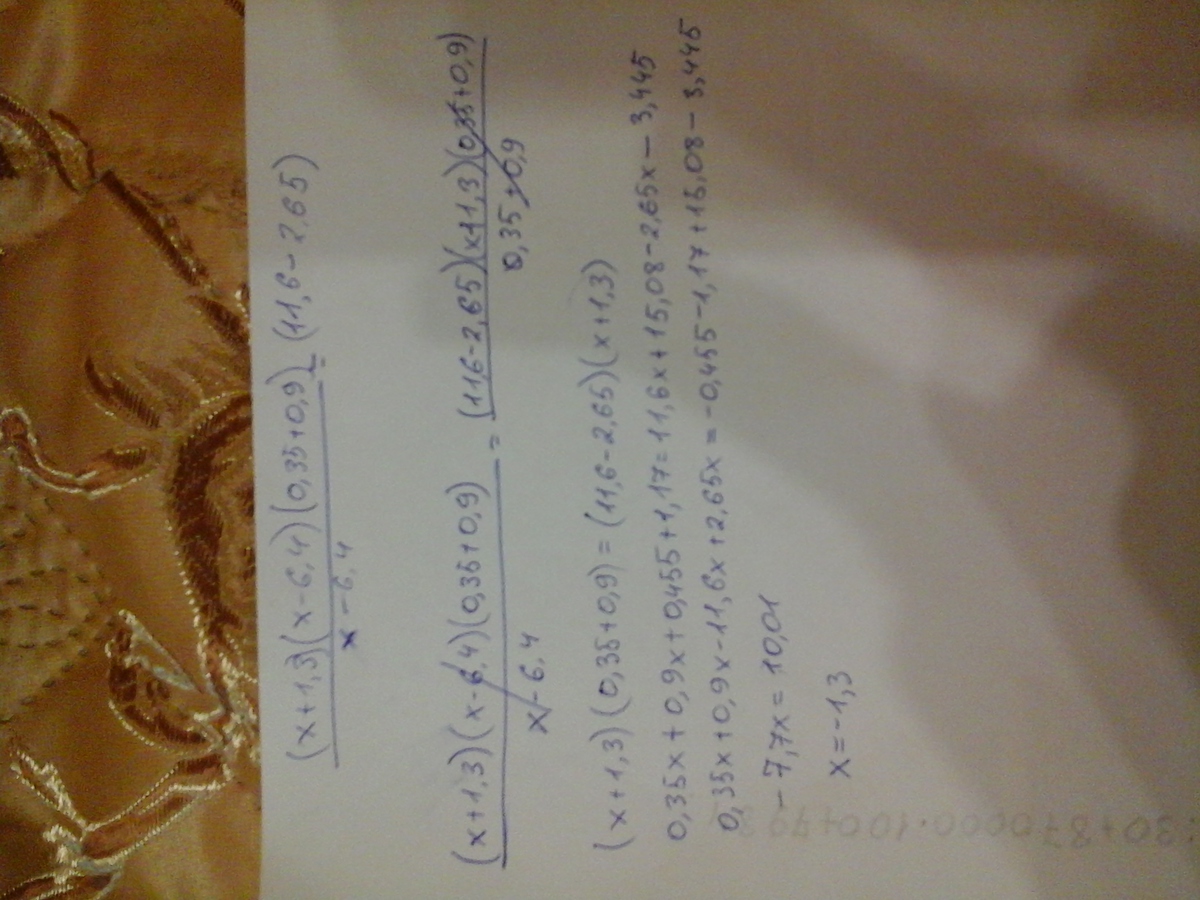 (x+1,3)(x-6,4)(0,35+0,9) = (11,6-2,65)
x-6,4
(x+1,3)(x-6,4)(0,35+0,9) = (11,6-2,65)(x+1,3)(0,35+0,9)
x-6,4 0,35+0,9
(x+1,3)(0,35+0,9)=(11,6-2,65)(x+1,3)
0,35x+0,9x+0,455+1,17=11,6x+15,08-2,65x-3,445
0,35x+0,9x-11,6x+2,65x=-0,455-1,17+15,08-3,445
-7,7x=10,01
x=-1,3